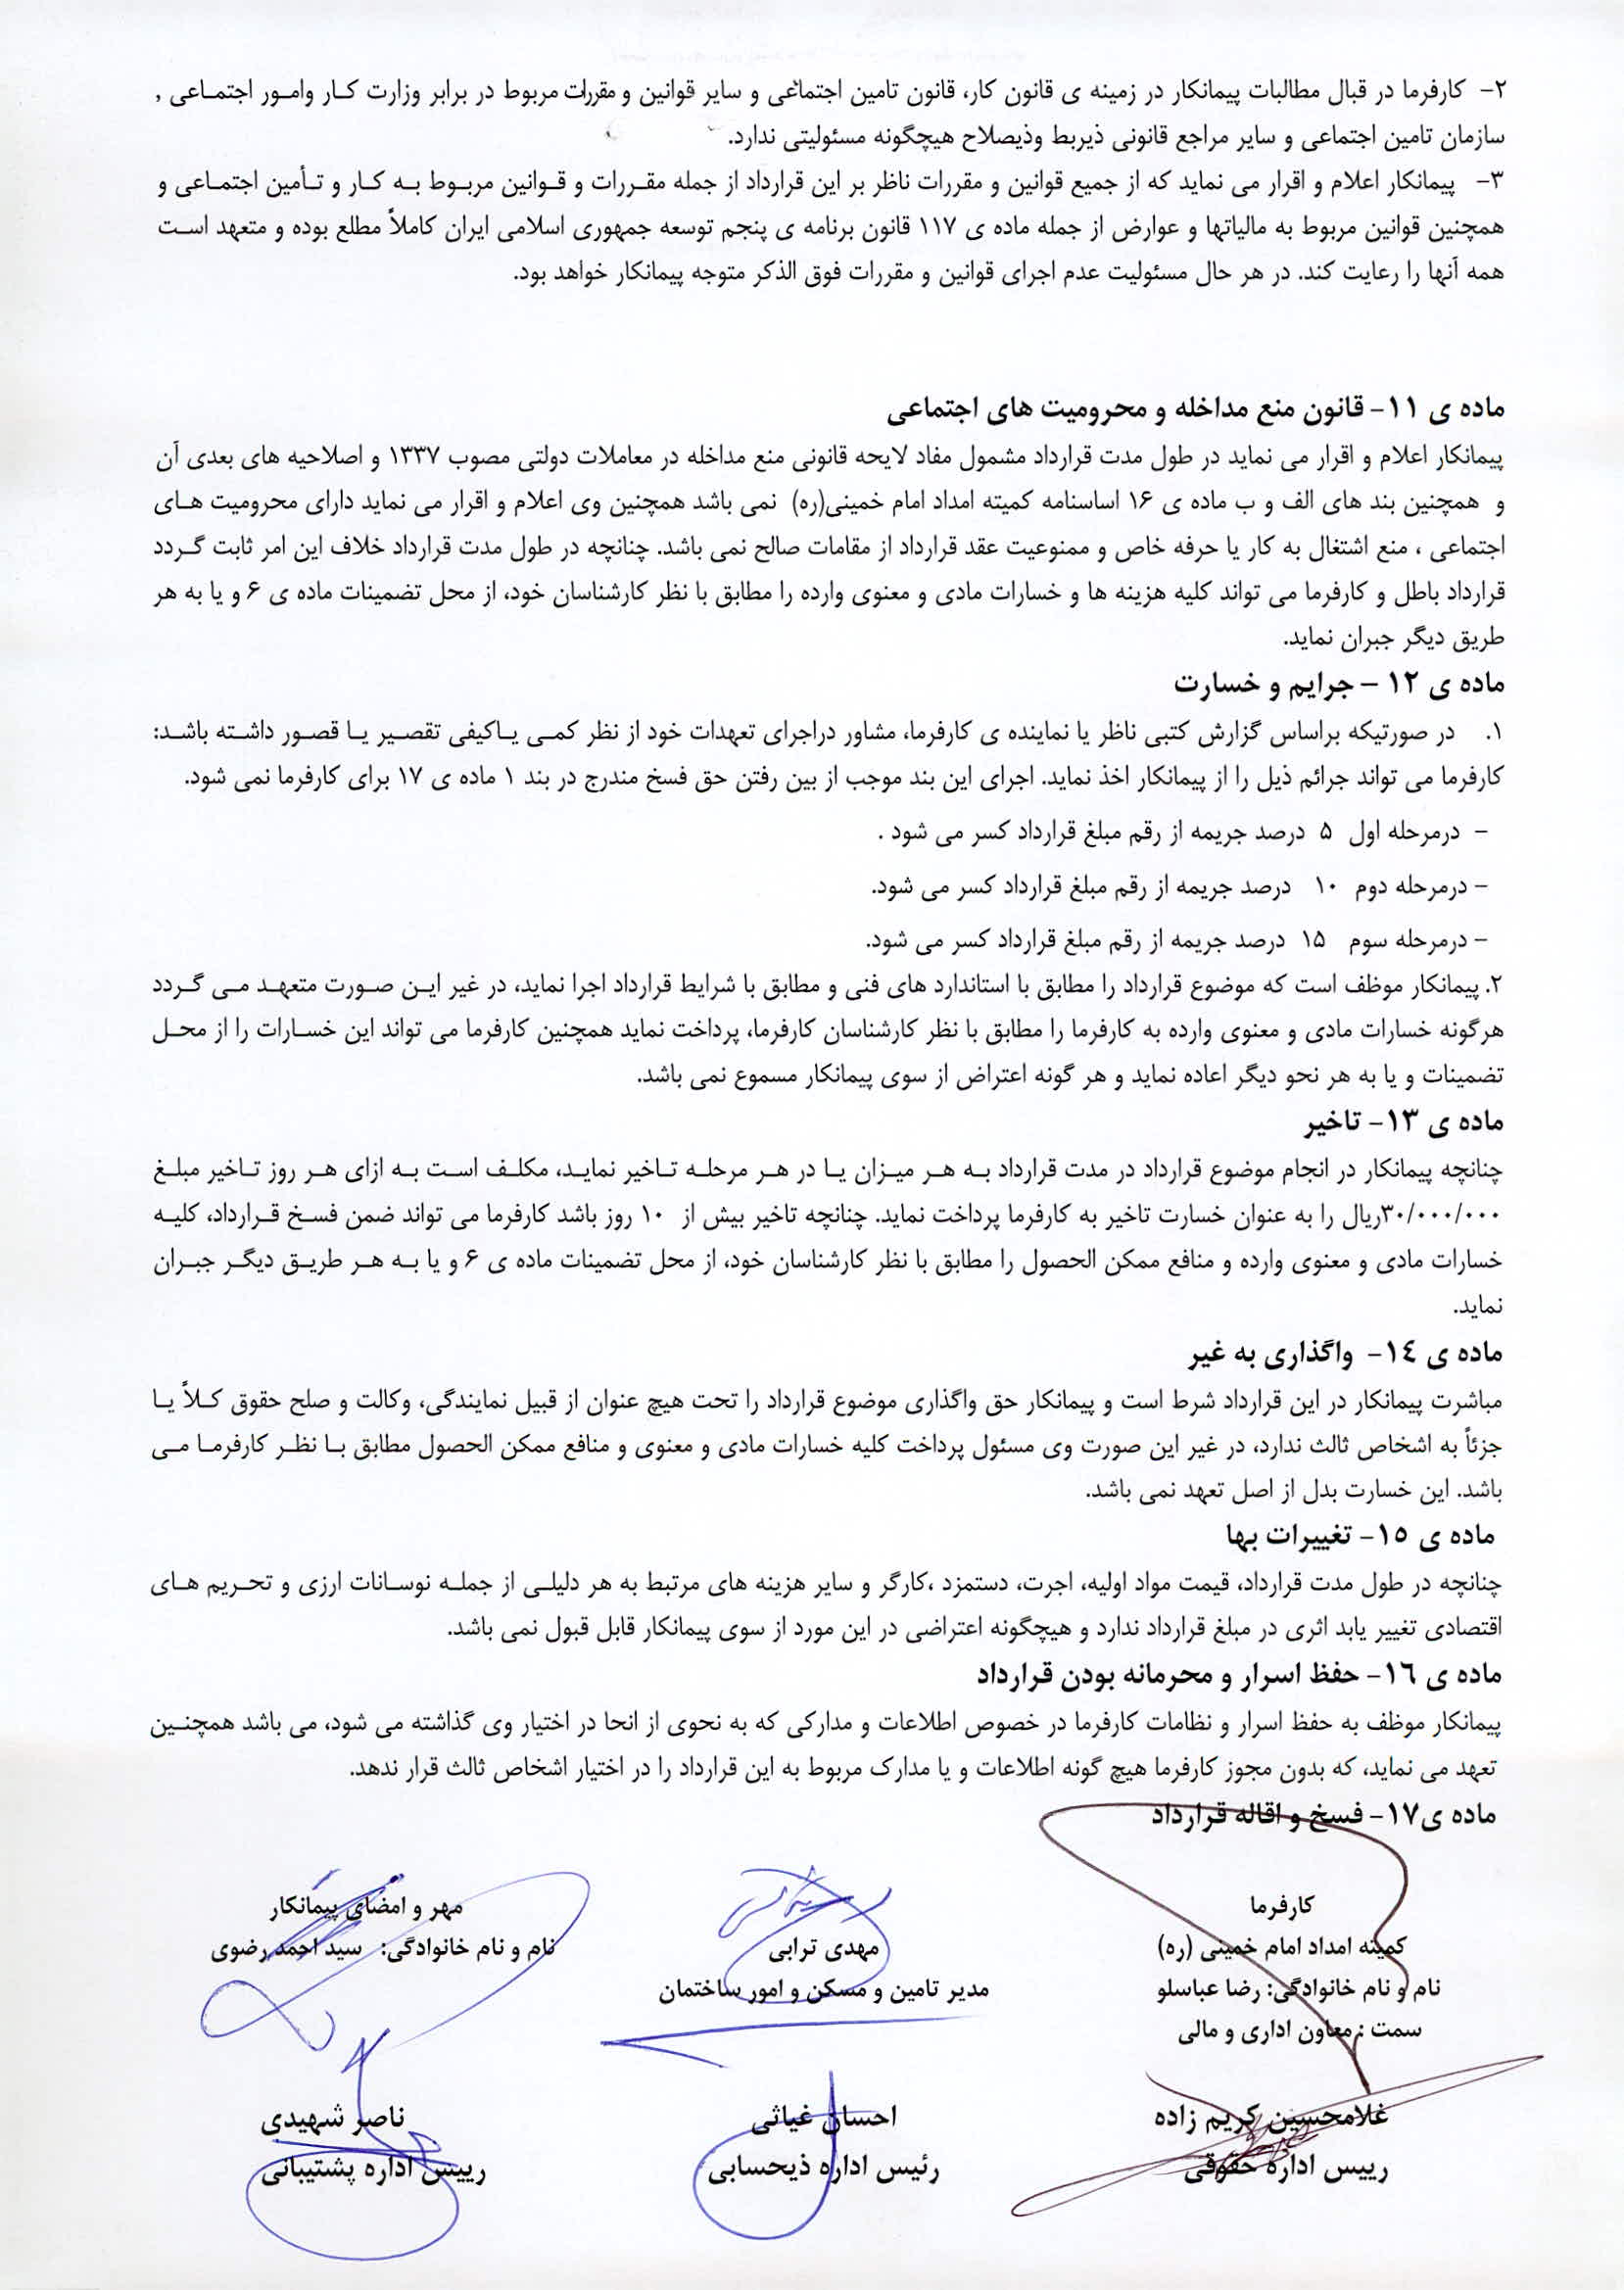 ۲- کارفرما در قبال مطالبات پیمانکار در زمینه ی قانون کار، قانون تامین اجتماعی و سایر قوانین و مقررات مربوط در برابر وزارت کار وامور اجتماعی ,
سازمان تامین اجتماعی و سایر مراجع قانونی ذیربط وذیصلاح هیچگونه مسئولیتی ندارد.
۳- پیمانکار اعلام و اقرار می نماید که از جمیع قوانین و مقررات ناظر بر این قرارداد از جمله مقررات و قوانین مربوط به کار و تأمین اجتماعی و
همچنین قوانین مربوط به مالیاتها و عوارض از جمله ماده ی ۱۱۷ قانون برنامه ی پنجم توسعه جمهوری اسلامی ایران کاملاً مطلع بوده و متعهد است
همه آنها را رعایت کند. در هر حال مسئولیت عدم اجرای قوانین و مقررات فوق الذکر متوجه پیمانکار خواهد بود.
ماده ی ۱۱- قانون منع مداخله و محرومیت های اجتماعی
پیمانکار اعلام و اقرار می نماید در طول مدت قرارداد مشمول مفاد لایحه قانونی منع مداخله در معاملات دولتی مصوب ۱۳۳۷ و اصلاحیه های بعدی آن
و همچنین بند های الف و ب ماده ی ۱۶ اساسنامه کمیته امداد امام خمینی(ره) نمی باشد همچنین وی اعلام و اقرار می نماید دارای محرومیت های
اجتماعی ، منع اشتغال به کار یا حرفه خاص و ممنوعیت عقد قرارداد از مقامات صالح نمی باشد. چنانچه در طول مدت قرارداد خلاف این امر ثابت گردد
قرارداد باطل و کارفرما می تواند کلیه هزینه ها و خسارات مادی و معنوی وارده را مطابق با نظر کارشناسان خود، از محل تضمینات ماده ی ۶ و یا به هر
طریق دیگر جبران نماید.
ماده ی ۱۲ – جرایم و خسارت
۱. در صورتیکه براساس گزارش کتبی ناظر یا نماینده ی کارفرما، مشاور دراجرای تعهدات خود از نظر کمی یاکیفی تقصیر یا قصور داشته باشد:
کارفرما می تواند جرائم ذیل را از پیمانکار اخذ نماید. اجرای این بند موجب از بین رفتن حق فسخ مندرج در بند ۱ ماده ی ۱۷ برای کارفرما نمی شود.
- درمرحله اول ۵ درصد جریمه از رقم مبلغ قرارداد کسر می شود .
- درمرحله دوم ۱۰ درصد جریمه از رقم مبلغ قرارداد کسر می شود.
- درمرحله سوم ۱۵ درصد جریمه از رقم مبلغ قرارداد کسر می شود.
۲. پیمانکار موظف است که موضوع قرارداد را مطابق با استاندارد های فنی و مطابق با شرایط قرارداد اجرا نماید، در غیر این صورت متعهد می گردد
هرگونه خسارات مادی و معنوی وارده به کارفرما را مطابق با نظر کارشناسان کارفرما، پرداخت نماید همچنین کارفرما می تواند این خسارات را از محل
تضمینات و یا به هر نحو دیگر اعاده نماید و هر گونه اعتراض از سوی پیمانکار مسموع نمی باشد.
ماده ی ۱۳- تاخیر
چنانچه پیمانکار در انجام موضوع قرارداد در مدت قرارداد به هر میزان یا در هر مرحله تاخیر نماید، مکلف است به ازای هر روز تاخیر مبلغ
۳۰/۰۰۰/۰۰۰ریال را به عنوان خسارت تاخیر به کارفرما پرداخت نماید. چنانچه تاخیر بیش از ۱۰ روز باشد کارفرما می تواند ضمن فسخ قرارداد، کلیه
خسارات مادی و معنوی وارده و منافع ممکن الحصول را مطابق با نظر کارشناسان خود، از محل تضمینات ماده ی ۶ و یا به هر طریق دیگر جبران
نماید.
ماده ی ۱۴- واگذاری به غیر
مباشرت پیمانکار در این قرارداد شرط است و پیمانکار حق واگذاری موضوع قرارداد را تحت هیچ عنوان از قبیل نمایندگی، وکالت و صلح حقوق کلاً یا
جزئاً به اشخاص ثالث ندارد، در غیر این صورت وی مسئول پرداخت کلیه خسارات مادی و معنوی و منافع ممکن الحصول مطابق با نظر کارفرما می
باشد. این خسارت بدل از اصل تعهد نمی باشد.
ماده ی ۱۵- تغییرات بها
چنانچه در طول مدت قرارداد، قیمت مواد اولیه، اجرت، دستمزد ،کارگر و سایر هزینه های مرتبط به هر دلیلی از جمله نوسانات ارزی و تحریم های
اقتصادی تغییر یابد اثری در مبلغ قرارداد ندارد و هیچگونه اعتراضی در این مورد از سوی پیمانکار قابل قبول نمی باشد.
ماده ی ۱۶- حفظ اسرار و محرمانه بودن قرارداد
پیمانکار موظف به حفظ اسرار و نظامات کارفرما در خصوص اطلاعات و مدارکی که به نحوی از انحا در اختیار وی گذاشته می شود، می باشد همچنین
تعهد می نماید، که بدون مجوز کارفرما هیچ گونه اطلاعات و یا مدارک مربوط به این قرارداد را در اختیار اشخاص ثالث قرار ندهد.
ماده ی۱۷- فسخ و اقاله قرارداد
کارفرما
کمیته امداد امام خمینی (ره)
نام و نام خانوادگی: رضا عباسلو
سمت : معاون اداری و مالی
مهدی ترابی
مدیر تامین و مسکن و امور ساختمان
مهر و امضای پیمانکار
نام و نام خانوادگی: سید احمد رضوی
غلامحسین کریم زاده
رییس اداره حقوقی
احسان غیاثی
رئیس اداره ذیحسابی
ناصر شهیدی
رییس اداره پشتیبانی